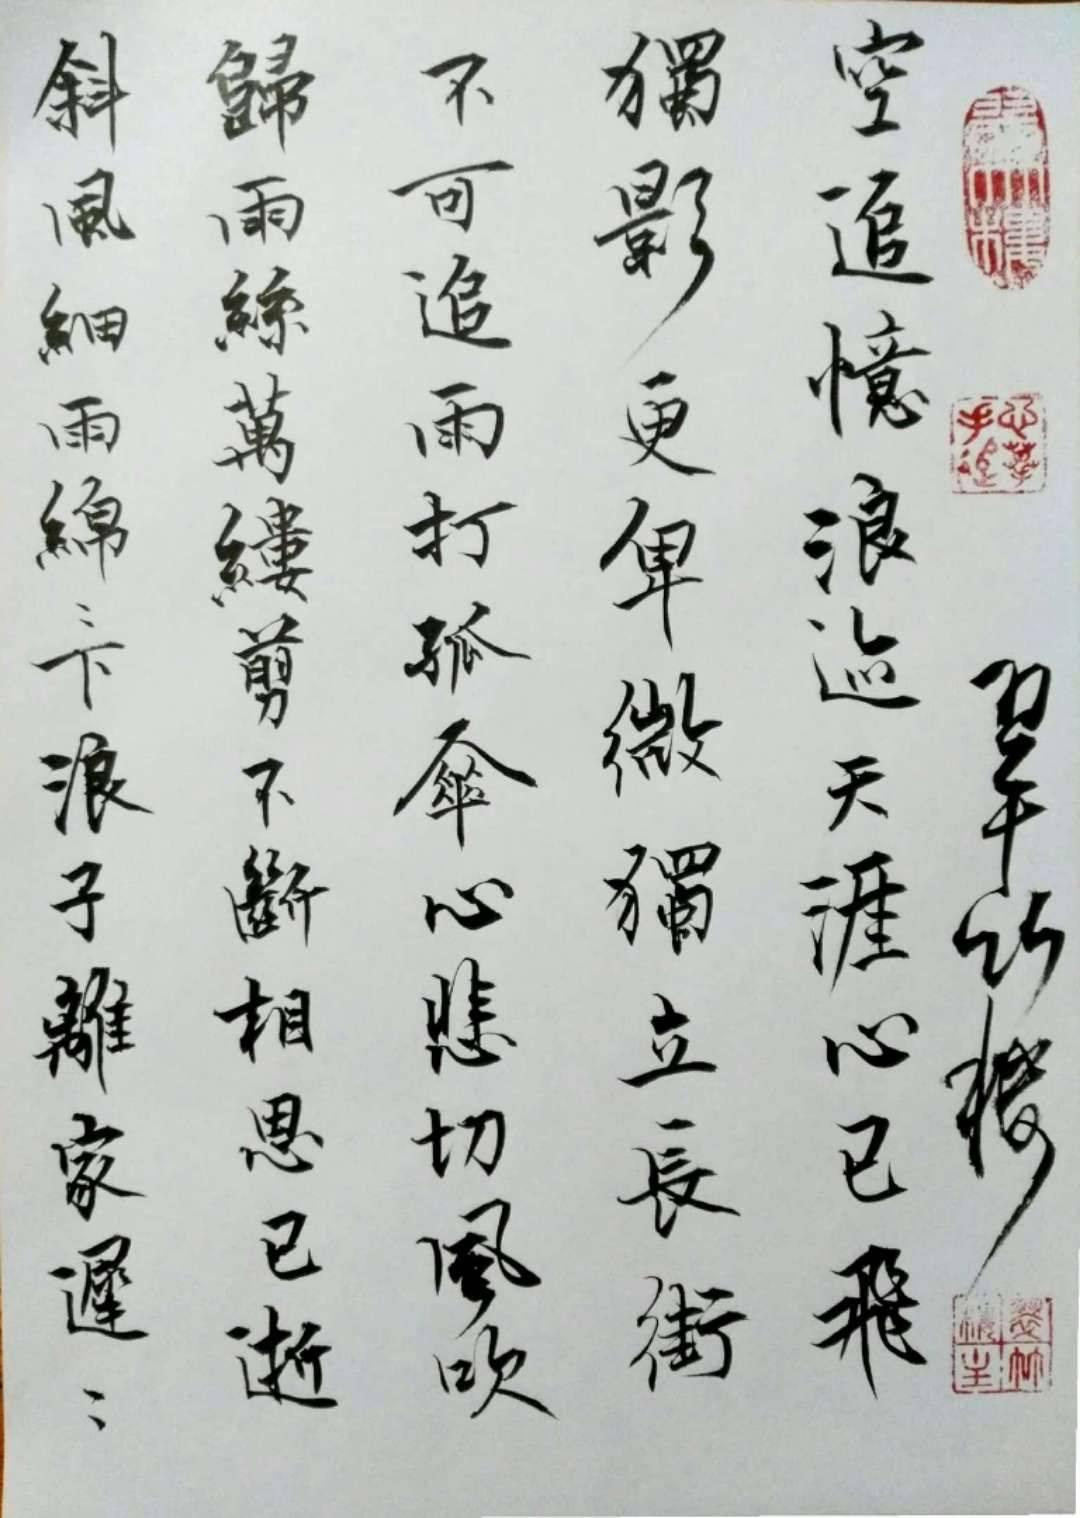 斜風細雨綿々下浪子離家遲々
歸雨絲萬縷剪不斷相思已逝
不可追雨打孤傘心悲切風吹
獨影更卑微獨立長街
空追憶浪迹天涯心已飛
翠竹樓
心摹手追
翠竹樓主